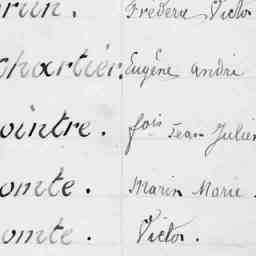 run. Frédéric Victor
chartier. Eugène andré
ointre. fois Jean Julien
omte. Marin Marie
omte. Victor.